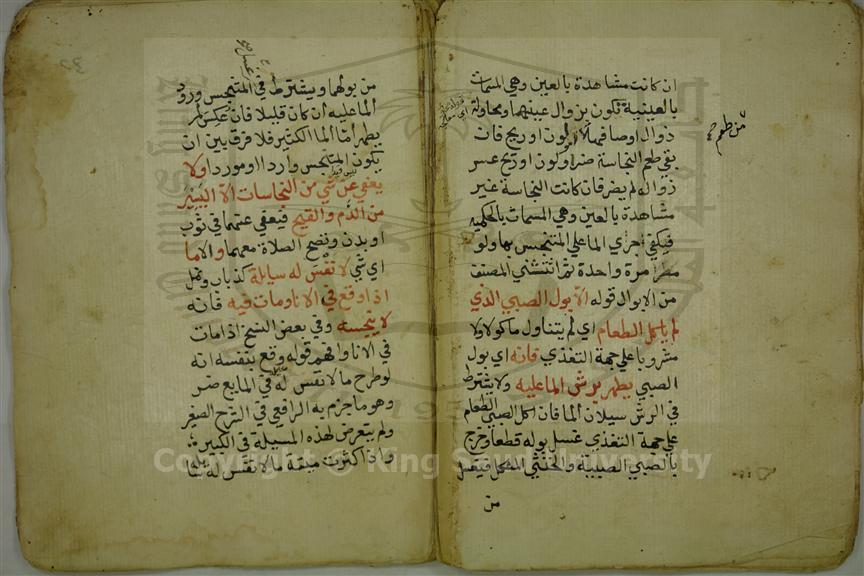 ان كانت مشاهدة بالعين وهي المسمات
بالعينية تكون بزوال عينها ومحاولة
زوال اوصافها لون او ريح فان
بقي طعم النجاسة ضر او لون او ريح عسر
زواله لم يضر فان كانت النجاسة غير
مشاهدة بالعين وهي المسمات بالحكمية
فيكفي اجري الما علي المتنجس بها ولو
مطر مرة واحدة ثم استثني المصنف
من الابوال قوله الا بول الصبي الذي
لم ياكل الطعام اي لم يتناول ماكولا ولا
مشروبا علي جهة التغذي فانه اي بول
الصبي يطهر برش الما عليه ولا يشترط
في الرش سيلان الما فان اكل الصبي الطعام
علي جهة التغذي غسل بوله قطعا وخرج
بالصبي الصبية والخنثي المشكل فيغسل
من
من طعم
من بولهما ويشترط في المتنجس ورود
الما عليه ان كان قليلا فان عكس لم
يطهر اما الما الكثير فلا فرق بين ان
يكون المتنجس واردا او مورودا ولا
يعفي عن شي من النجاسات الا اليسير
من الدم والقيح فيعفي عنهما في ثوب
او بدن وتصح الصلاة معهما والا ما
اي شي لا نفس له سايلة كذباب ونمل
اذا وقع في الانا ومات فيه فانه
لا ينجسه وفي بعض النسخ اذا مات
في الانا وافهم قوله وقع بنفسه انه
لو طرح ما لا نفس له في المايع ضر
وهو ما جزم به الرافعي في الشرح الصغير
ولم يتعرض لهذه المسيلة في الكبير
واذا كثرت ميتة ما لا نفس له سايلة
Copyright © King Saud University
195